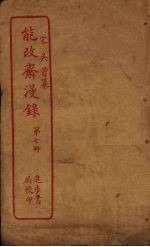 宋吴曾纂
能改齋漫錄
第七冊
進步書
局校印